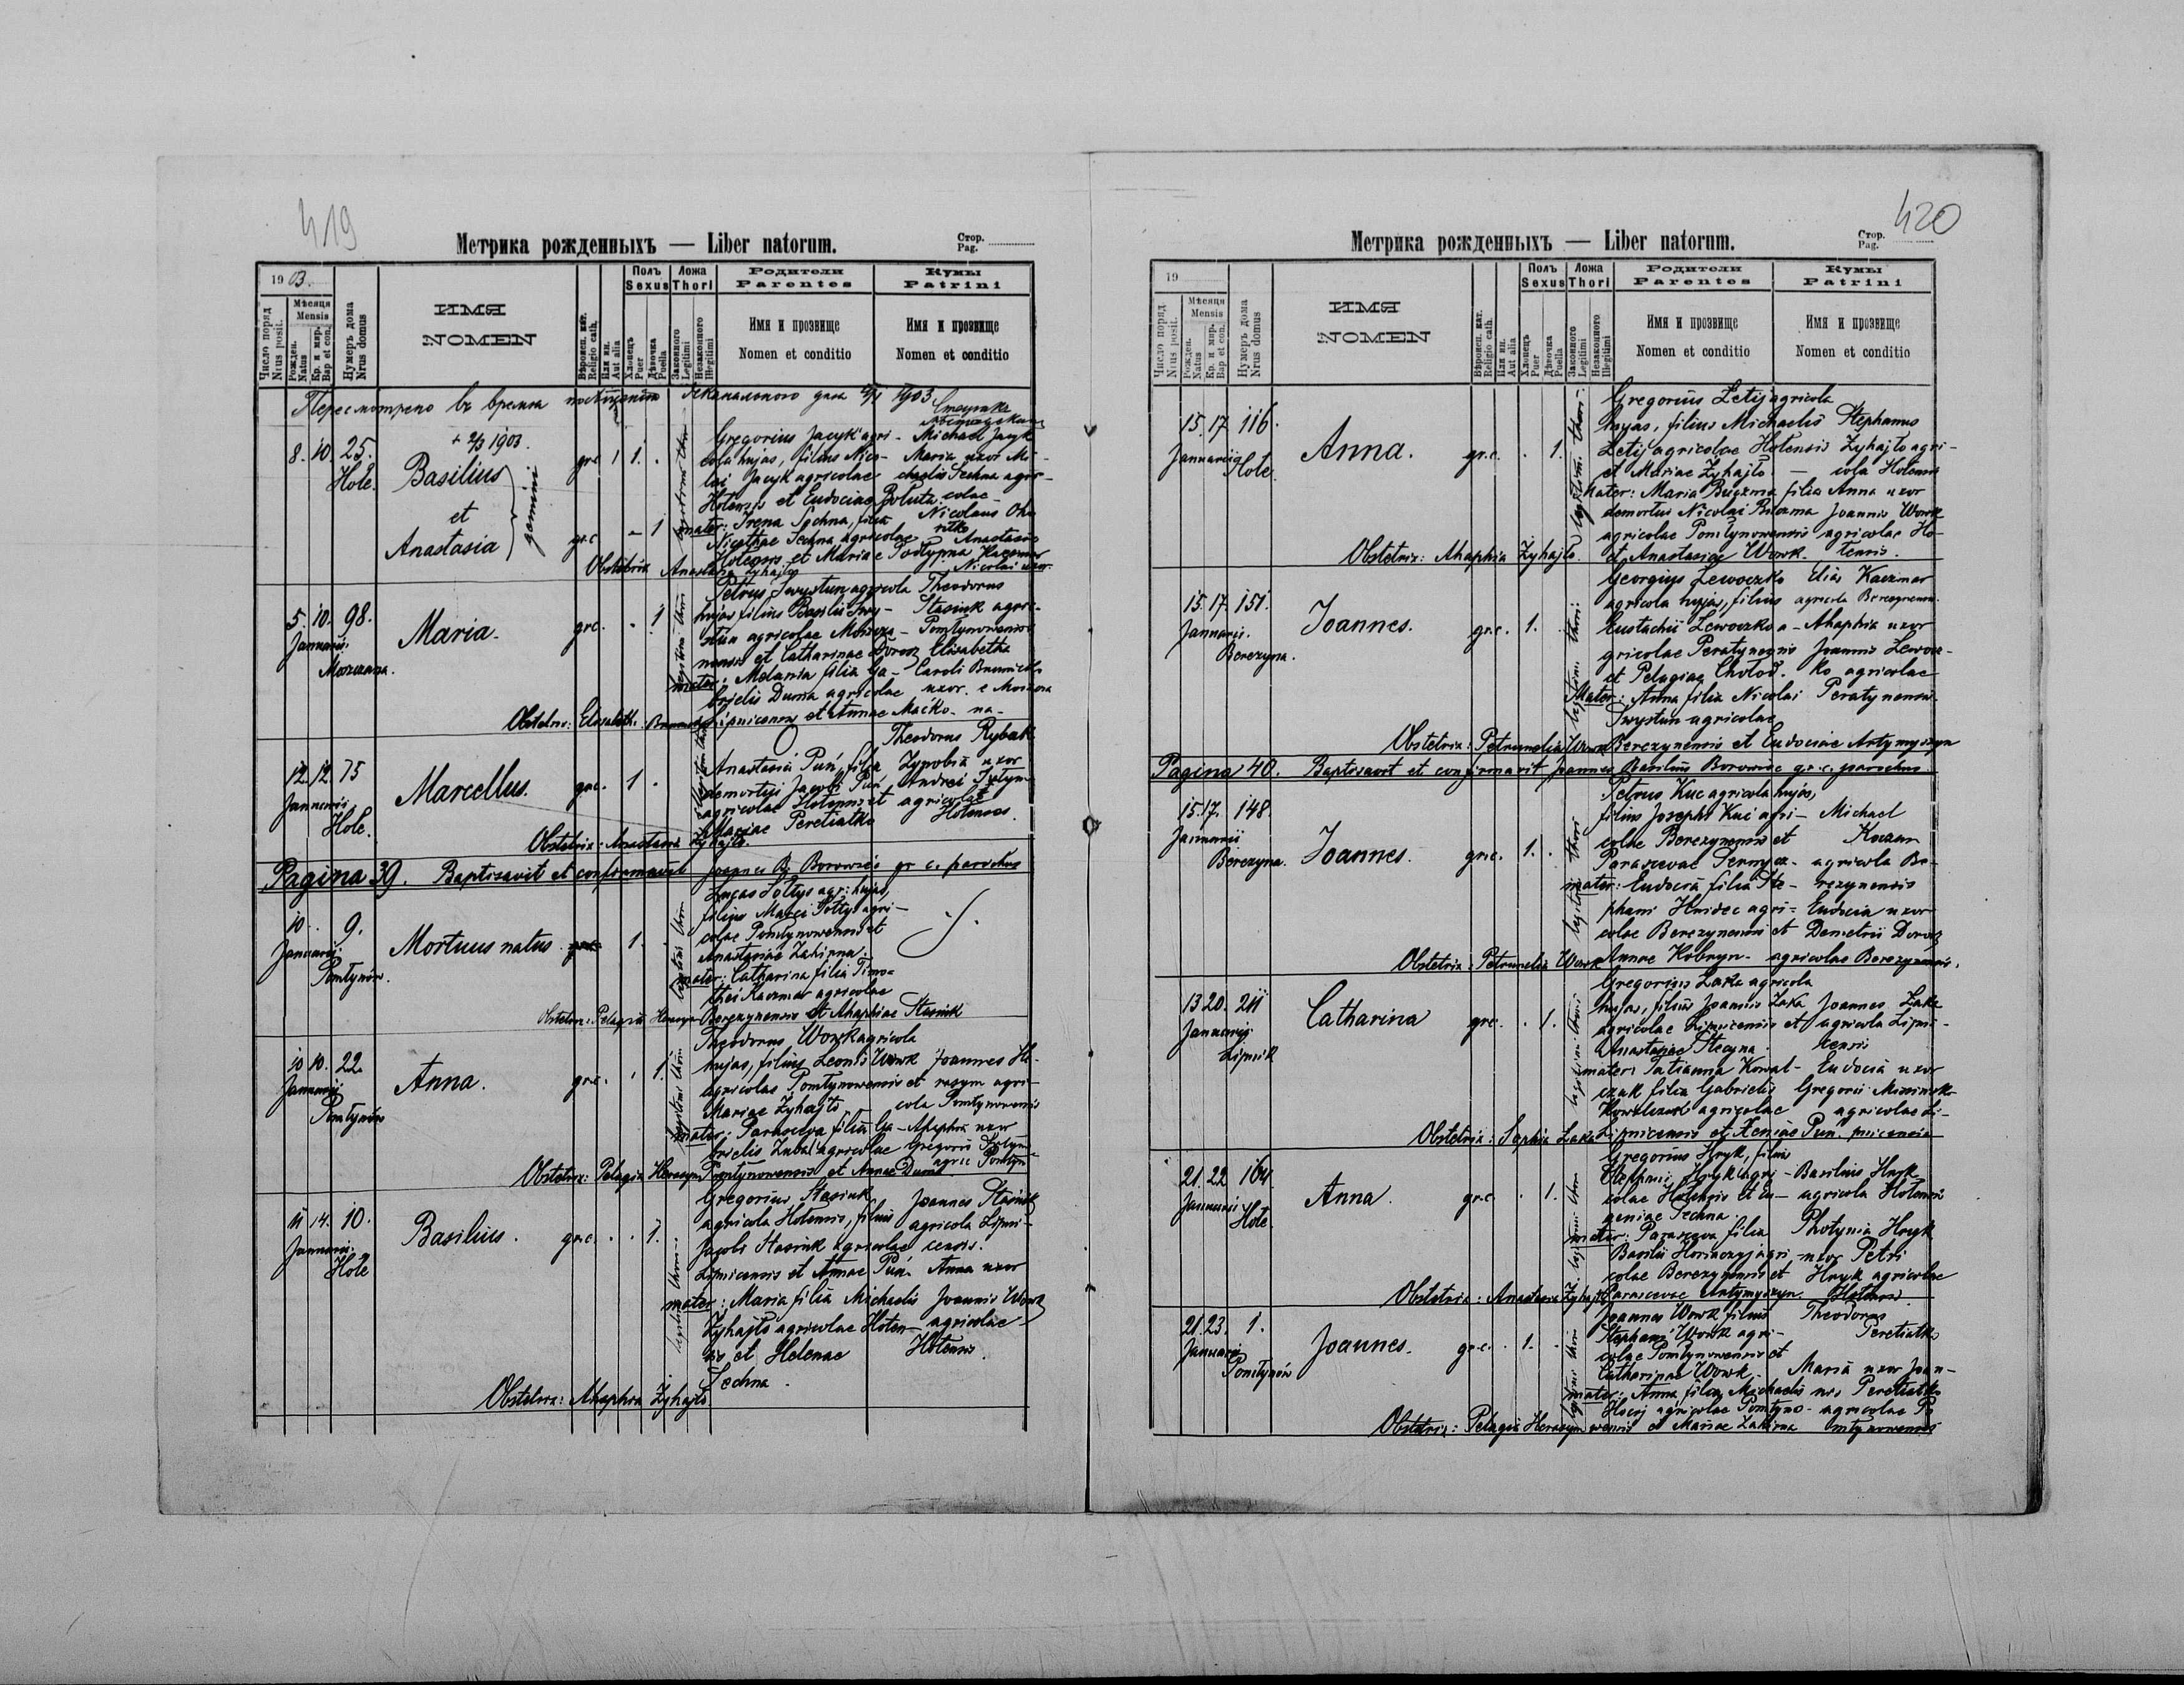 419
Метрика рожденныхъ — Liber natorum.
Стор.
Pag.
1903.
Число поряд
Nrus posit.
Мѣсяця
Mensis
Рожден.
Natus
Кр. и мир.
Bap et con.
Нумеръ дома
Nrus domus
ИМЯ
NOMEN
Вѣроисп. кат.
Religio cath.
Или ин.
Aut alia
Полъ
Sexus
Хлопецъ
Puer
Дѣвочка
Puella
Ложа
Thori
Законного
Legitimi
Незаконного
Illegitimi
Родители
Parentes
Имя и прозвище
Nomen et conditio
Кумы
Patrini
Имя и прозвище
Nomen et conditio
Пересмотрено въ время 1903
8. 10. 25.
Hole.
1903.
Basilius
et
Anastasia
gemini
gr.c. 1.
gr.c - 1
Gregorius Jacyk agri-
cola hujas, filius Nico-
lai Jacyk agricolae
Hotensis et Eudociae Poluta
mater: Irena Sechna, filia
Nicethae Sechna agricolae
Hotensis et Mariae
Michael Jacyk
Maria uxor Mi-
chaelis Sechna agri-
colae
Nicolaus
Anastasia
Kaczmar
Nicolai uxor
Obstetrix Anastasia Zyhajło
5. 10. 98.
Januarii
Moszczana.
Maria.
gr.c. . 1
legitimi thori
Petrus Swystun agricola
hujas filius Basilii Swy-
stun agricolae Moszcza-
nensis et Catharinae Dorosz
mater: Melania filia Ga-
brielis Duma agricolae
Lipnicensis et Annae Maćko
Theodorus
Stasiuk agri-
Pomtynowensis
Elisabetha
Caroli
uxor. e Moszcza
na-
Obstetrix: Elisabeth:
12. 12. 75
Januarii
Hole.
Marcellus.
gr.c. 1 .
Anastasia Puń, filia
demortui Jacobi Puń
agricolae Hotensis et
Mariae Peretiatko
Theodorus Rybak
Zynobia uxor
Andrei
agricolae
Hotensis.
Obstetrix: Anastasia Zyhajło.
Pagina 39. Baptisavit et confirmavit Joannes B. Borowiec gr. c. parochus
10. 9.
Januarii
Pomtynów.
Mortuus natus
1.
Lucas Sołtys agr: hujas,
filius Marci Sołtys agri-
colae Pomtynowensis et
Anastasiae Zakirna.
mater: Catharina filia Timo-
thei Kaczmar agricolae
Berezynensis et Ahaphiae Stasiuk
Obstetrix: Pelagia Herasym
10 10. 22
Januarii
Pomtynów
Anna.
gr.c. . 1.
legitimi thori
Theodorus Wowk agricola
hujas, filius Leontii Wowk
agricolae Pomtynowensis et
Mariae Zyhajło
mater: Parasceva filia Ga-
brielis Zuba agricolae
Pomtynowensis et Annae Duma
Joannes He-
rasym agri-
cola Pomtynowensis
Ahaphia uxor
Gregorii
agric Pomtyn
Obstetrix: Pelagia Herasym
11 14. 10.
Januarii.
Hole
Basilius.
gr.c. . . 1.
legitimi thori
Gregorius Stasiuk
agricola Hotensis, filius
Jacobi Stasiuk agricolae
Lipnicensis et Annae Puń.
mater: Maria filia Michaelis
Zyhajło agricolae Hoten-
sis et Helenae
Sechna.
Joannes Stasiuk
agricola Lipni-
censis.
Anna uxor
Joannis Wowk
agricolae
Hotensis.
Obstetrix: Ahaphia Zyhajło.
420
Метрика рожденныхъ — Liber natorum.
Стор.
Pag.
19
Число поряд
Nrus posit.
Мѣсяця
Mensis
Рожден.
Natus
Кр. и мир.
Bap et con.
Нумеръ дома
Nrus domus
ИМЯ
NOMEN
Вѣроисп. кат.
Religio cath.
Или ин.
Aut alia
Полъ
Sexus
Хлопецъ
Puer
Дѣвочка
Puella
Ложа
Thori
Законного
Legitimi
Незаконного
Illegitimi
Родители
Parentes
Имя и прозвище
Nomen et conditio
Кумы
Patrini
Имя и прозвище
Nomen et conditio
15. 17. 116.
Januarii
Hole.
Anna.
gr.c. . 1.
legitimi thori
Gregorius Letij agricola
hujas, filius Michaelis
Letij agricolae Hotensis
et Mariae Zyhajło.
Mater: Maria filia
demortui Nicolai
agricolae Pomtynowensis
et Anastasiae Wowk.
Stephanus
Zyhajło agri-
cola Hotensis
Anna uxor
Joannis Wowk
agricolae Ho-
tensis.
Obstetrix: Ahaphia Zyhajło.
15. 17. 151.
Januarii.
Berezyna.
Joannes.
gr.c. 1.
legitimi thori
Georgius Lewoczko
agricola hujas, filius
Eustachii Lewoczko a-
gricolae Peratynensis
et Pelagiae Chołod.
Mater: Anna filia Nicolai
Swystun agricolae
Berezynensis et Eudociae Artymyszyn
Elias Kaczmar
agricola Berezynensis
Ahaphia uxor
Joannis Lewocz-
ko agricolae
Peratynensis
Obstetrix: Petrunelia Wowk
Pagina 40. Baptisavit et confirmavit Joannes Basilius Borowiec gr. c. parochus
15. 17. 148.
Januarii
Berezyna.
Joannes.
gr.c. 1. .
legitimi thori
Petrus Kuc agricola hujas,
filius Josephi Kuc agri-
colae Berezynensis et
Parascevae
mater: Eudocia filia Ste-
phani Hnidec agri-
colae Berezynensis et
Annae Kobryn.
Michael
agricola Be-
rezynensis
Eudocia uxor
Demetrii Dorosz
agricolae Berezynensis.
Obstetrix: Petrunelia Wowk
13 20. 211
Januarii
Lipnik
Catharina
gr.c. . 1.
legitimi thori
Gregorius Łaka agricola
hujas, filius Joannis Łaka
agricolae Lipnicensis et
Anastasiae Stecyna.
mater: Tatianna Kowal-
czuk filia Gabrielis
Kowalczuk agricolae
Lipnicensis et Xeniae Puń.
Joannes Łaka
agricola Lipni-
censis
Eudocia uxor
Gregorii
agricolae Li-
pnicensis
Obstetrix: Sophia Łaka
21. 22 164.
Januarii
Hole.
Anna.
gr.c. . 1.
Gregorius Hryk, filius
Stephani Hryk agri-
colae Hotensis et Eu-
geniae Sechna.
mater: Parasceva filia
Basilii agri-
colae Berezynensis et
Parascevae Artymyszyn.
Basilius Hryk
agricola Hotensis
Photynia Hryk
uxor Petri
Hryk agricolae
Hotensis.
Obstetrix: Anastasia Zyhajło
21. 23. 1.
Januarii
Pomtynów
Joannes.
gr.c. . 1. .
Joannes Wowk filius
Stephani Wowk agri-
colae Pomtynowensis et
Catharinae Wowk.
mater: Anna filia Michaelis
agricolae Pomtyno-
wensis et Mariae Zakirna
Theodorus
Peretiatko
Maria uxor Joan-
nis Peretiatko
agricolae Po
mtynowensis
Obstetrix: Pelagia Herasym